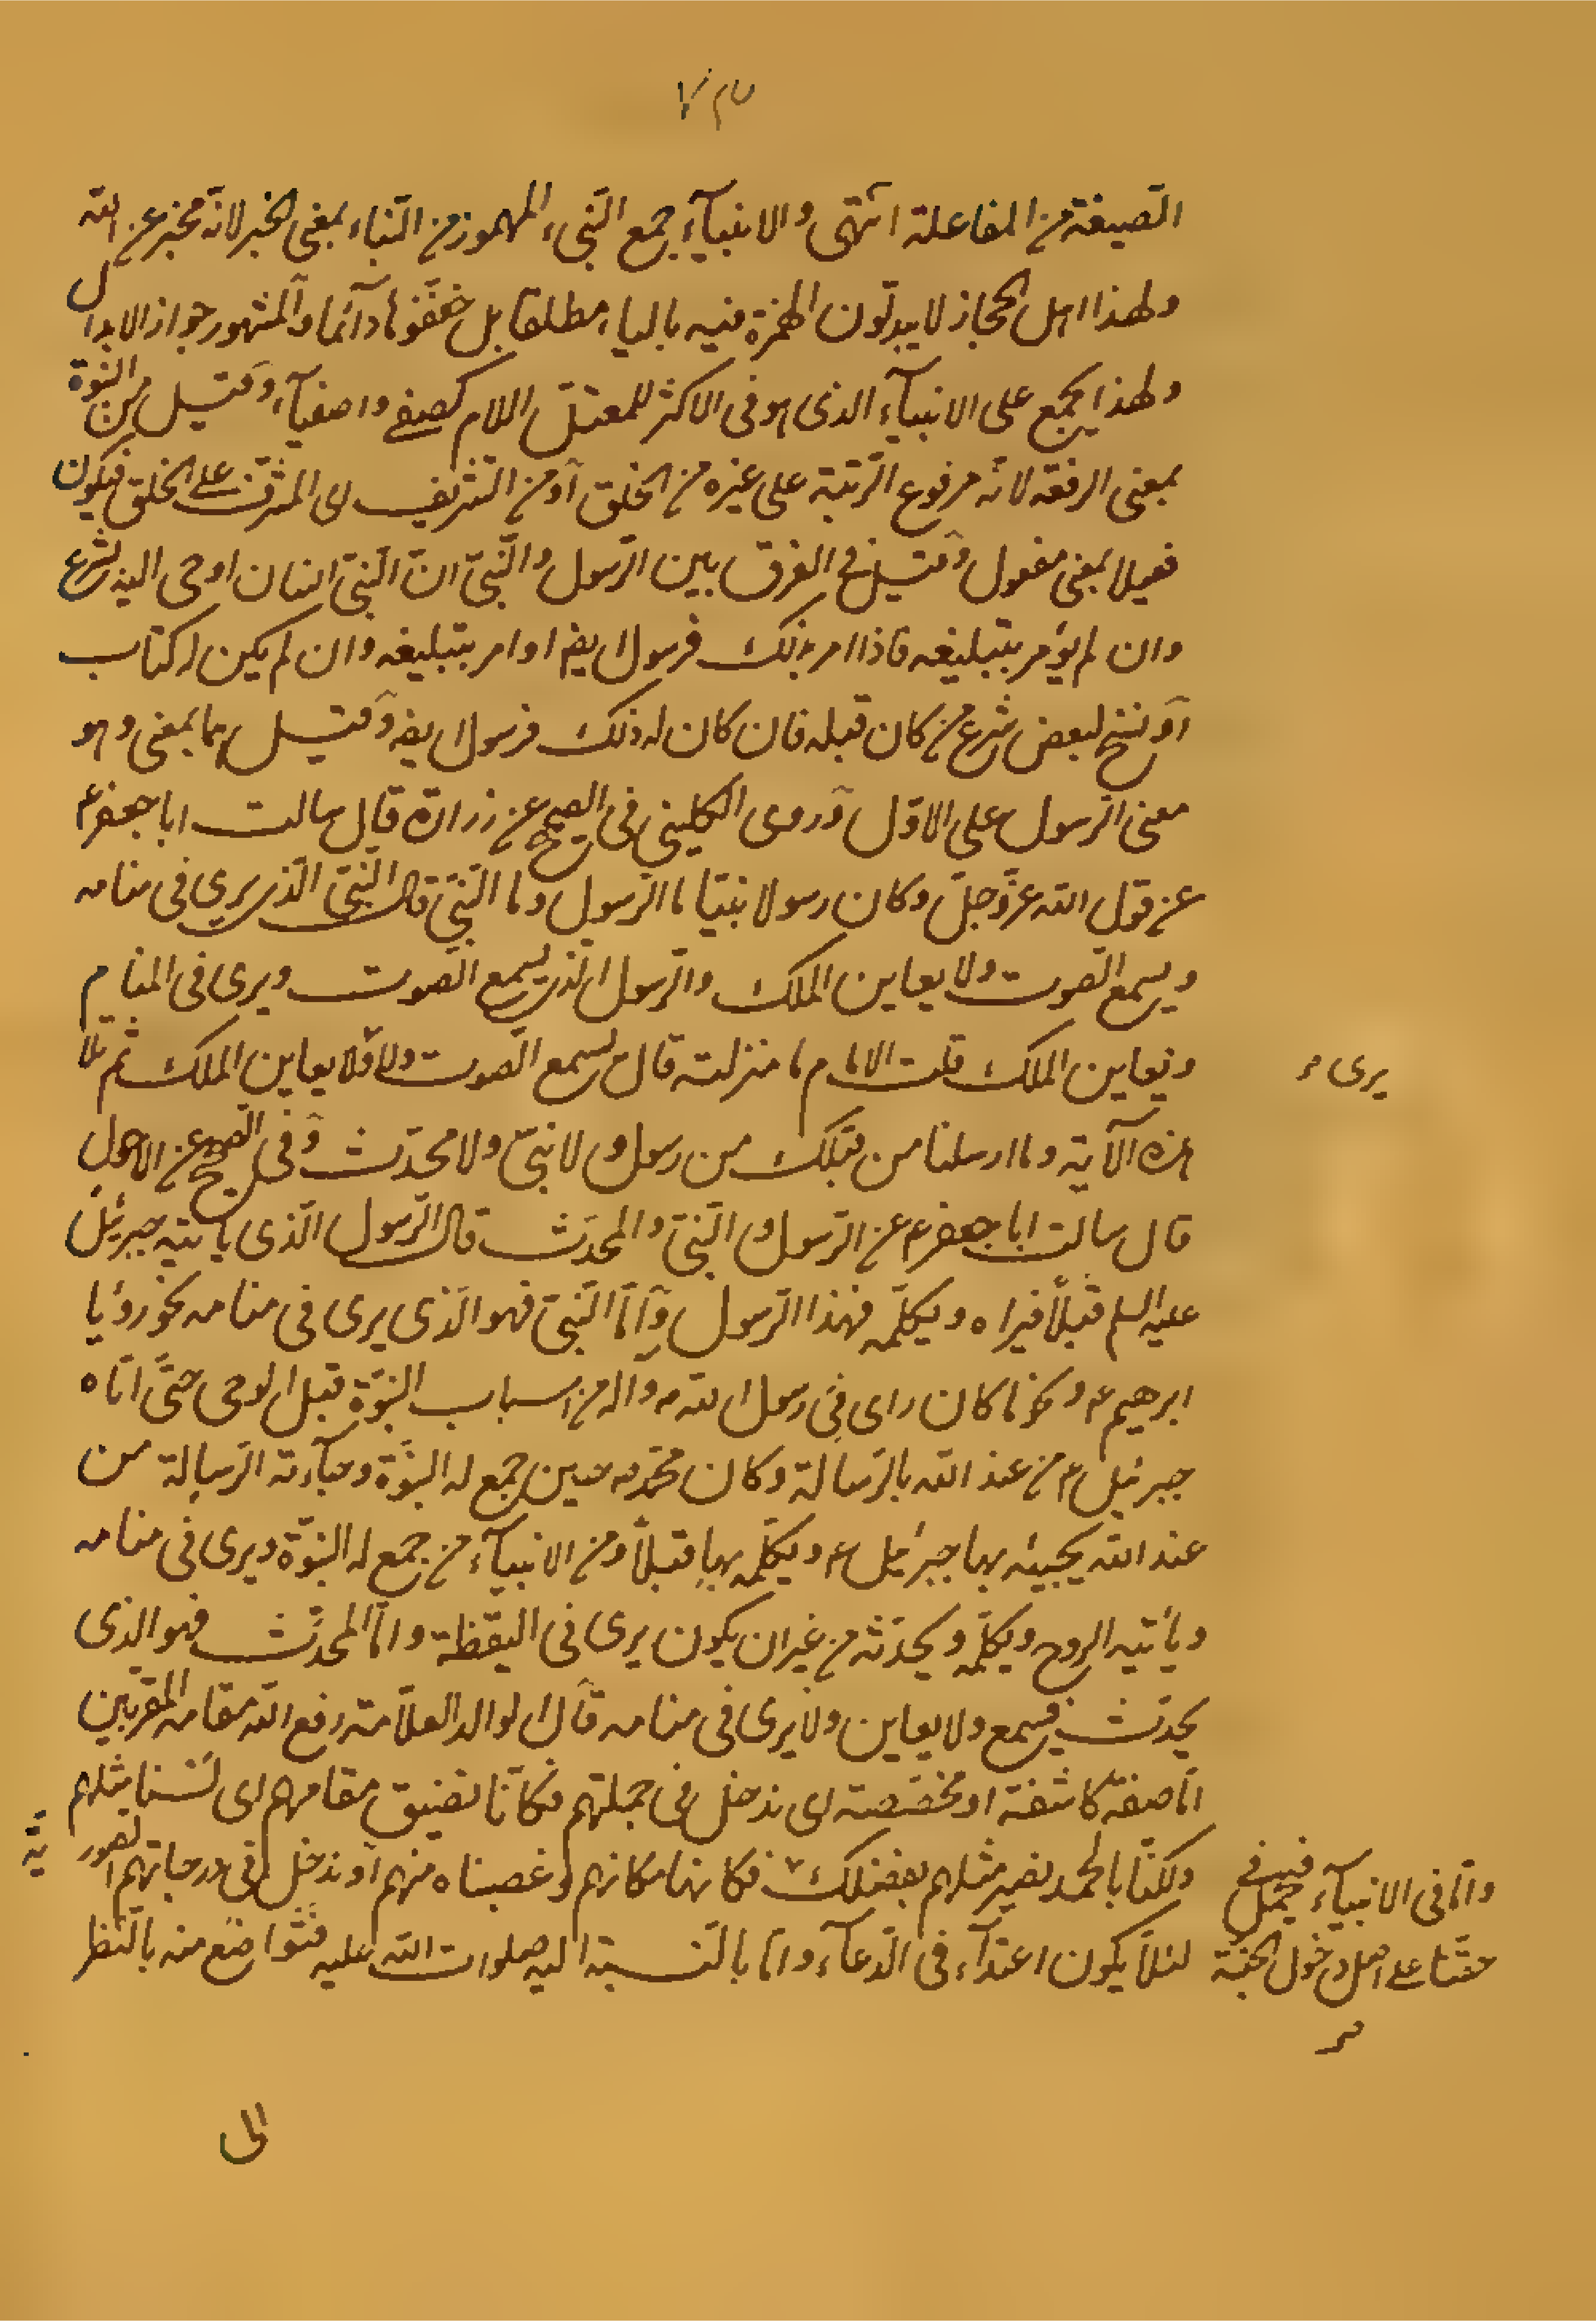 الصیغة من المفاعلة انتهى والانبیآء جمع النّبیء المهموز من النّباء بمعنى الخبر لانّه مخبر عن الله
ولهذا اهل الحجاز لا یبدلون الهمزة فیه بالیاء مطلقا بل خفّفوها دآئما والمشهور جواز الابدال
ولهذا یجمع على الانبیآء الذی هو فی الاكثر للمعتل اللام كصفی واصفیآء وقیل من النبوة
بمعنى الرفعة لانّه مرفوع الرّتبة على غیره من الخلق او من التشریف ای المشرّف على الخلق فیكون
فعیلا بمعنى مفعول وقیل فی الفرق بین الرّسول والنّبیّ انّ النّبیّ انسان اوحی الیه بشرع
وان لم یؤمر بتبلیغه فاذا امر بذلك فرسول ایضا او امر بتبلیغه وان لم یكن له كتاب
او نسخ لبعض شرع من كان قبله فان كان له ذلك فرسول ایضا وقیل هما بمعنى وهو
معنى الرّسول على الاوّل وروى الكلینی فی الصحیح عن زرارة قال سالت ابا جعفر ع
عن قول الله عزّ وجلّ وكان رسولا نبیّا ما الرّسول وما النّبیّ قال النّبیّ الّذی یرى فی منامه
ویسمع الصّوت ولا یعاین الملك والرّسول الّذی یسمع الصّوت ویرى فی المنام
ویعاین الملك قلت الامام ما منزلته قال یسمع الصّوت ولا یرى ولا یعاین الملك ثم تلا
هذه الآیة وما ارسلنا من قبلك من رسول ولا نبیّ ولا محدّث وفی الصحیح عن الاحول
قال سالت ابا جعفر ع عن الرّسول والنّبیّ والمحدّث قال الرّسول الّذی یأتیه جبرئیل
علیه السلم قبلاً فیراه ویكلّمه فهذا الرّسول وامّا النّبیّ فهو الّذی یرى فی منامه نحو رؤیا
ابرهیم ع ونحو ما كان رای رسول الله ص وآله من اسباب النبوّة قبل الوحی حتّى اتاه
جبرئیل ع من عند الله بالرّسالة وكان محمّد ص حین جمع له النبوّة وجآءته الرّسالة من
عند الله یجیئه بها جبرئیل ع ویكلّمه بها قبلاً ومن الانبیآء من جمع له النبوّة ویرى فی منامه
ویأتیه الروح ویكلّمه ویحدّثه من غیر ان یكون یرى فی الیقظة وامّا المحدّث فهو الذی
یحدّث فیسمع ولا یعاین ولا یرى فی منامه قال الوالد العلّامة رفع الله مقامه المقرّبین
امّا صفة كاشفة او مخصّصة ای ندخل فی جملتهم فكانّا نضیق مقامهم ای لسنا مثلهم
ولكنّا بالحمد نصیر مثلهم بفضلك فكانهنا مكانهم وغصبناه منهم او ندخل فی درجاتهم
لئلّا یكون اعتدآء فی الدّعآء وامّا بالنّسبة الیه صلوات الله علیه فتواضع منه بالنّظر
یرى
وامّا فی الانبیآء فیحمل
حقّنا على اصل دخول الجنّة
الى